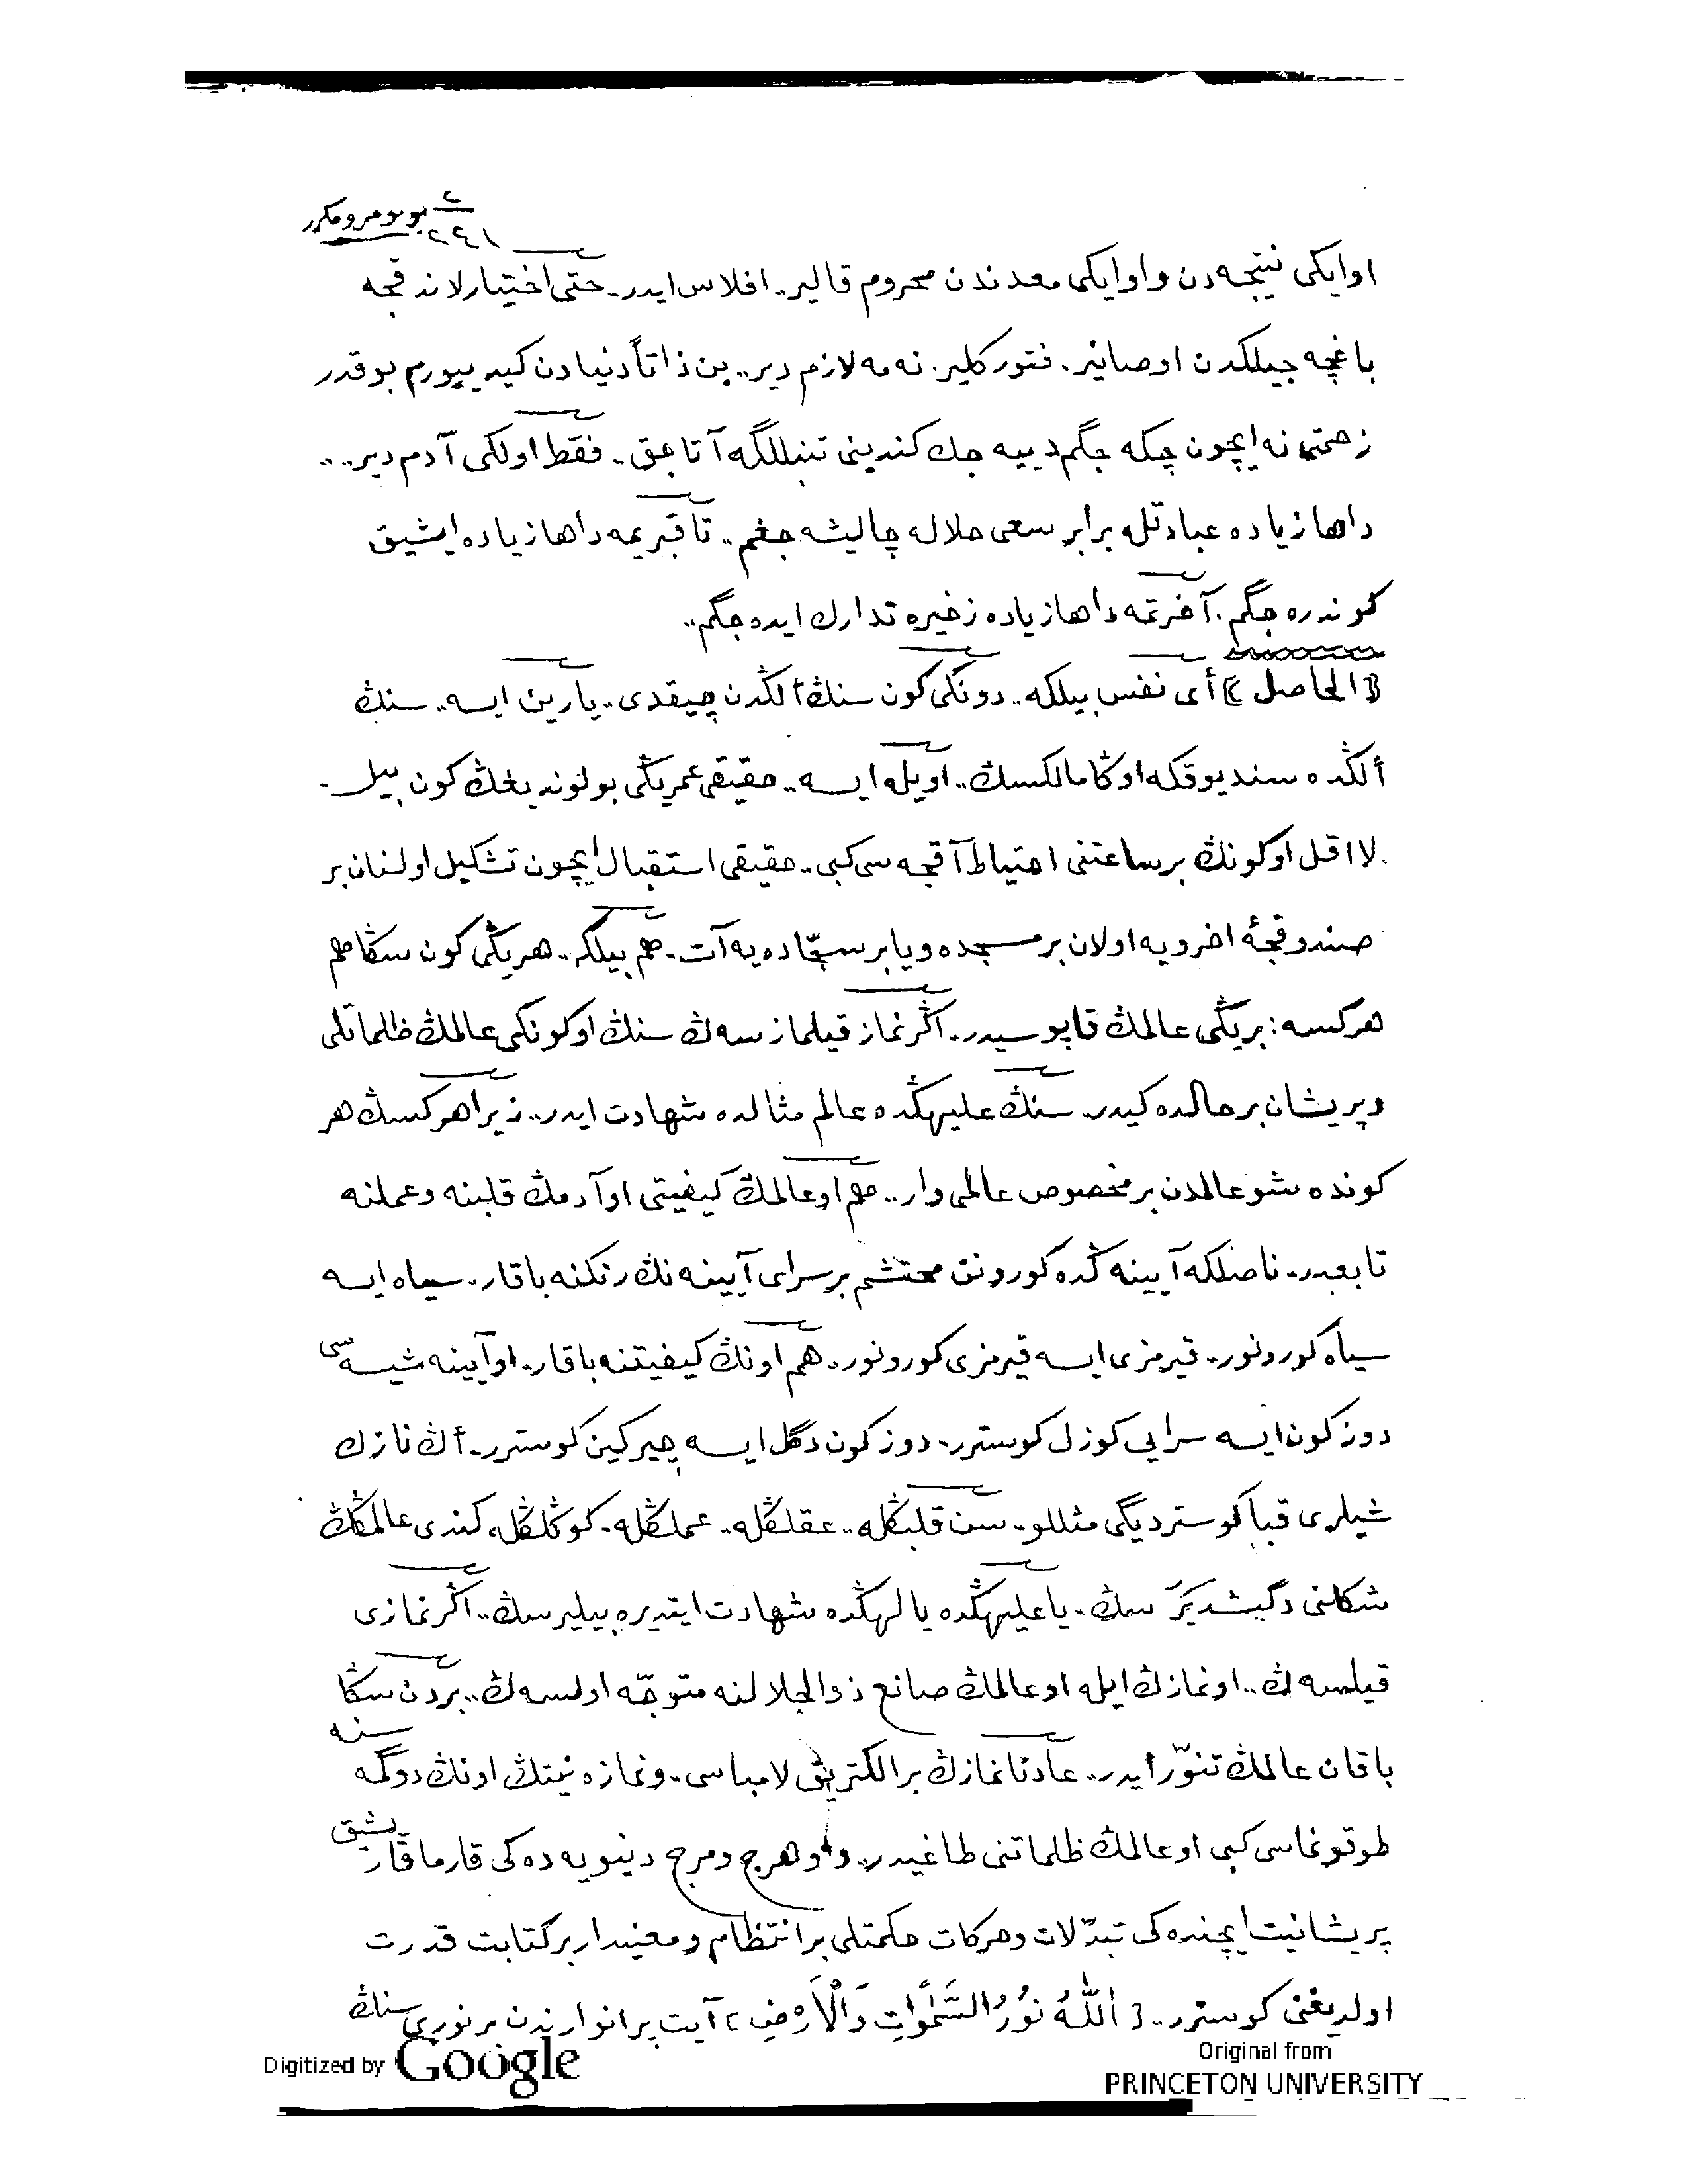 ٢٤١
او ايكى نتيجه دن و او ايكى معدندن محروم قالير.. افلاس ايدر.. حتى اختيارلاندقجه
باغچه جيلكدن اوصانير. فتور كلير. نه مه لازم دير.. بن ذاتاً دنيادن كيدييورم بو قدر
زحمتى نه ايچون چكه جگم دييه جك كندينى تنبللگه آتاجق.. فقط اولكى آدم دير..
داها زياده عبادتله برابر سعى حلاله چاليشه جغم.. تا قبريمه داها زياده ايشيق
كوندره جگم. آخرتمه داها زياده زخيره تدارك ايده جگم..
﴿ الحاصل ﴾ أى نفس بيلكه.. دونكى كون سنڭ ألڭدن چيقدى.. يارين ايسه.. سنڭ
ألڭده سند يوقكه اوڭا مالكسڭ.. اويله ايسه.. حقيقى عمريڭى بولونديغڭ كون بيل..
لا اقل او كونڭ بر ساعتنى احتياط آقچه سى كبى.. حقيقى استقبال ايچون تشكيل اولنان بر
صندوقجۀ اخرويه اولان بر مسجده ويا بر سجّاده يه آت.. هم بيلكه.. هر يڭى كون سڭا هم
هركسه: بر يڭى عالمڭ قاپوسيدر.. اگر نماز قيلمازسه ڭ سنڭ او كونكى عالمڭ ظلماتلى
و پريشان بر حالده كيدر.. سنڭ عليهڭده عالم مثالده شهادت ايدر.. زيرا هركسڭ هر
كونده شو عالمدن بر مخصوص عالمى وار.. هم او عالمڭ كيفيتى او آدمڭ قلبنه و عملنه
تابعدر.. ناصلكه آيينه ڭده كورونن محتشم بر سراى آيينه نڭ رنكنه باقار.. سياه ايسه
سياه كورونور.. قيرمزى ايسه قيرمزى كورونور.. هم اونڭ كيفيتنه باقار.. او آيينه شيشه سى
دوزكون ايسه سرايى كوزل كوسترر.. دوزكون دگل ايسه چيركين كوسترر.. أڭ نازك
شيلرى قبا كوسترديگى مثللو.. سن قلبڭله.. عقلڭله.. عملڭله.. كوڭلڭله كندى عالمڭڭ
شكلنى دگيشديررسڭ.. يا عليهڭده يا لهڭده شهادت ايتديره بيليرسڭ.. اگر نمازى
قيلسه ڭ.. او نمازڭ ايله او عالمڭ صانع ذوالجلالنه متوجّه اولسه ڭ.. بردن سڭا
باقان عالمڭ تنوّر ايدر.. عادتا نمازڭ بر الكتريق لامباسى.. و نمازه نيتڭ اونڭ دوگمه سنه
طوقونماسى كبى او عالمڭ ظلماتنى طاغيدر.. و او هرج و مرج دنيويه ده كى قارما قاريشيق
پريشانيت ايچنده كى تبدّلات و حركات حكمتلى بر انتظام و معنيدار بر كتابت قدرت
اولديغنى كوسترر.. ﴿ اَللّٰهُ نُورُ السَّمٰوَاتِ وَالْاَرْضِ ﴾ آيت پرانوارندن بر نورى سنڭ
Digitized by Google
Original from
PRINCETON UNIVERSITY